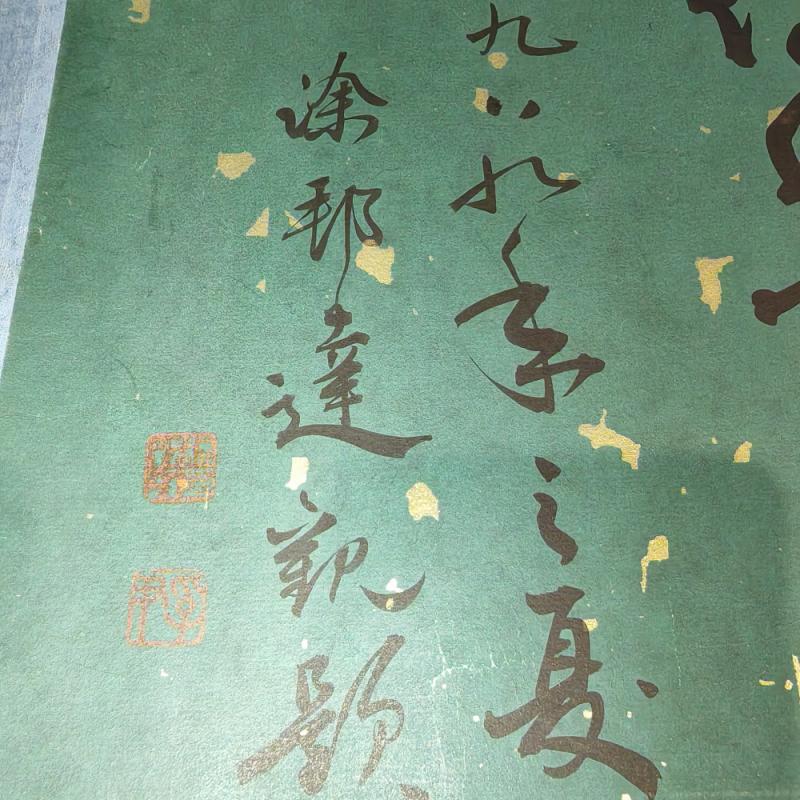 九八九年之夏
徐邦達觀題